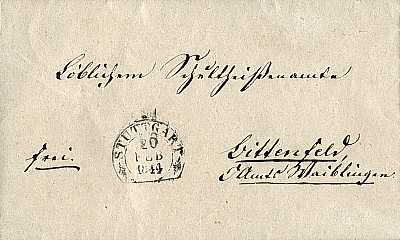 Löblichem Schultheißenamte
frei.
STUTTGART
20
FEB
1844
Bittenfeld,
OAmts Waiblingen.